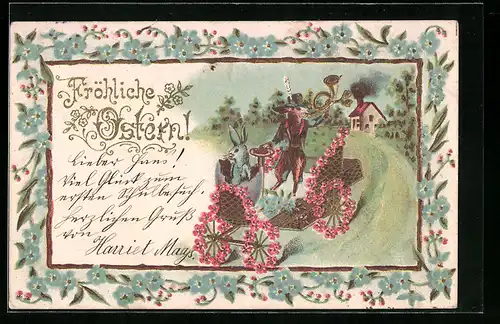 Fröhliche
Ostern!
Lieber Hans!
Viel Glück zum
ersten Schulbesuch.
herzlichen Gruß
von
Harriet Mags.